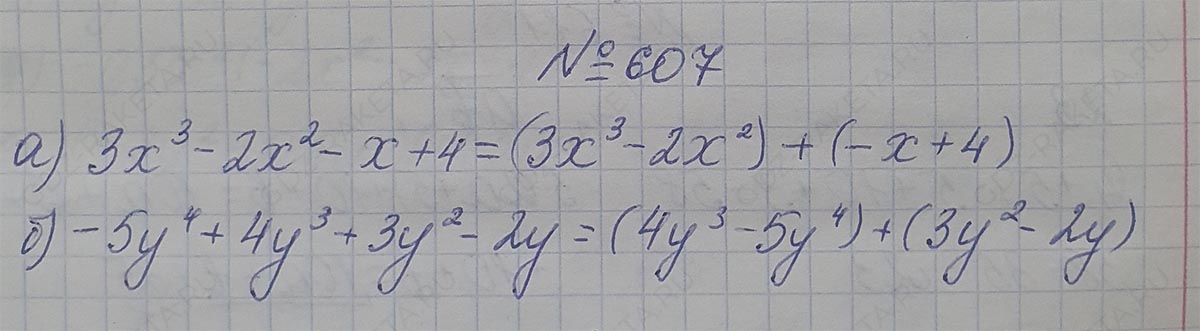 № 607
а) 3x³ - 2x² - x + 4 = (3x³ - 2x²) + (-x + 4)
б) -5y⁴ + 4y³ + 3y² - 2y = (4y³ - 5y⁴) + (3y² - 2y)